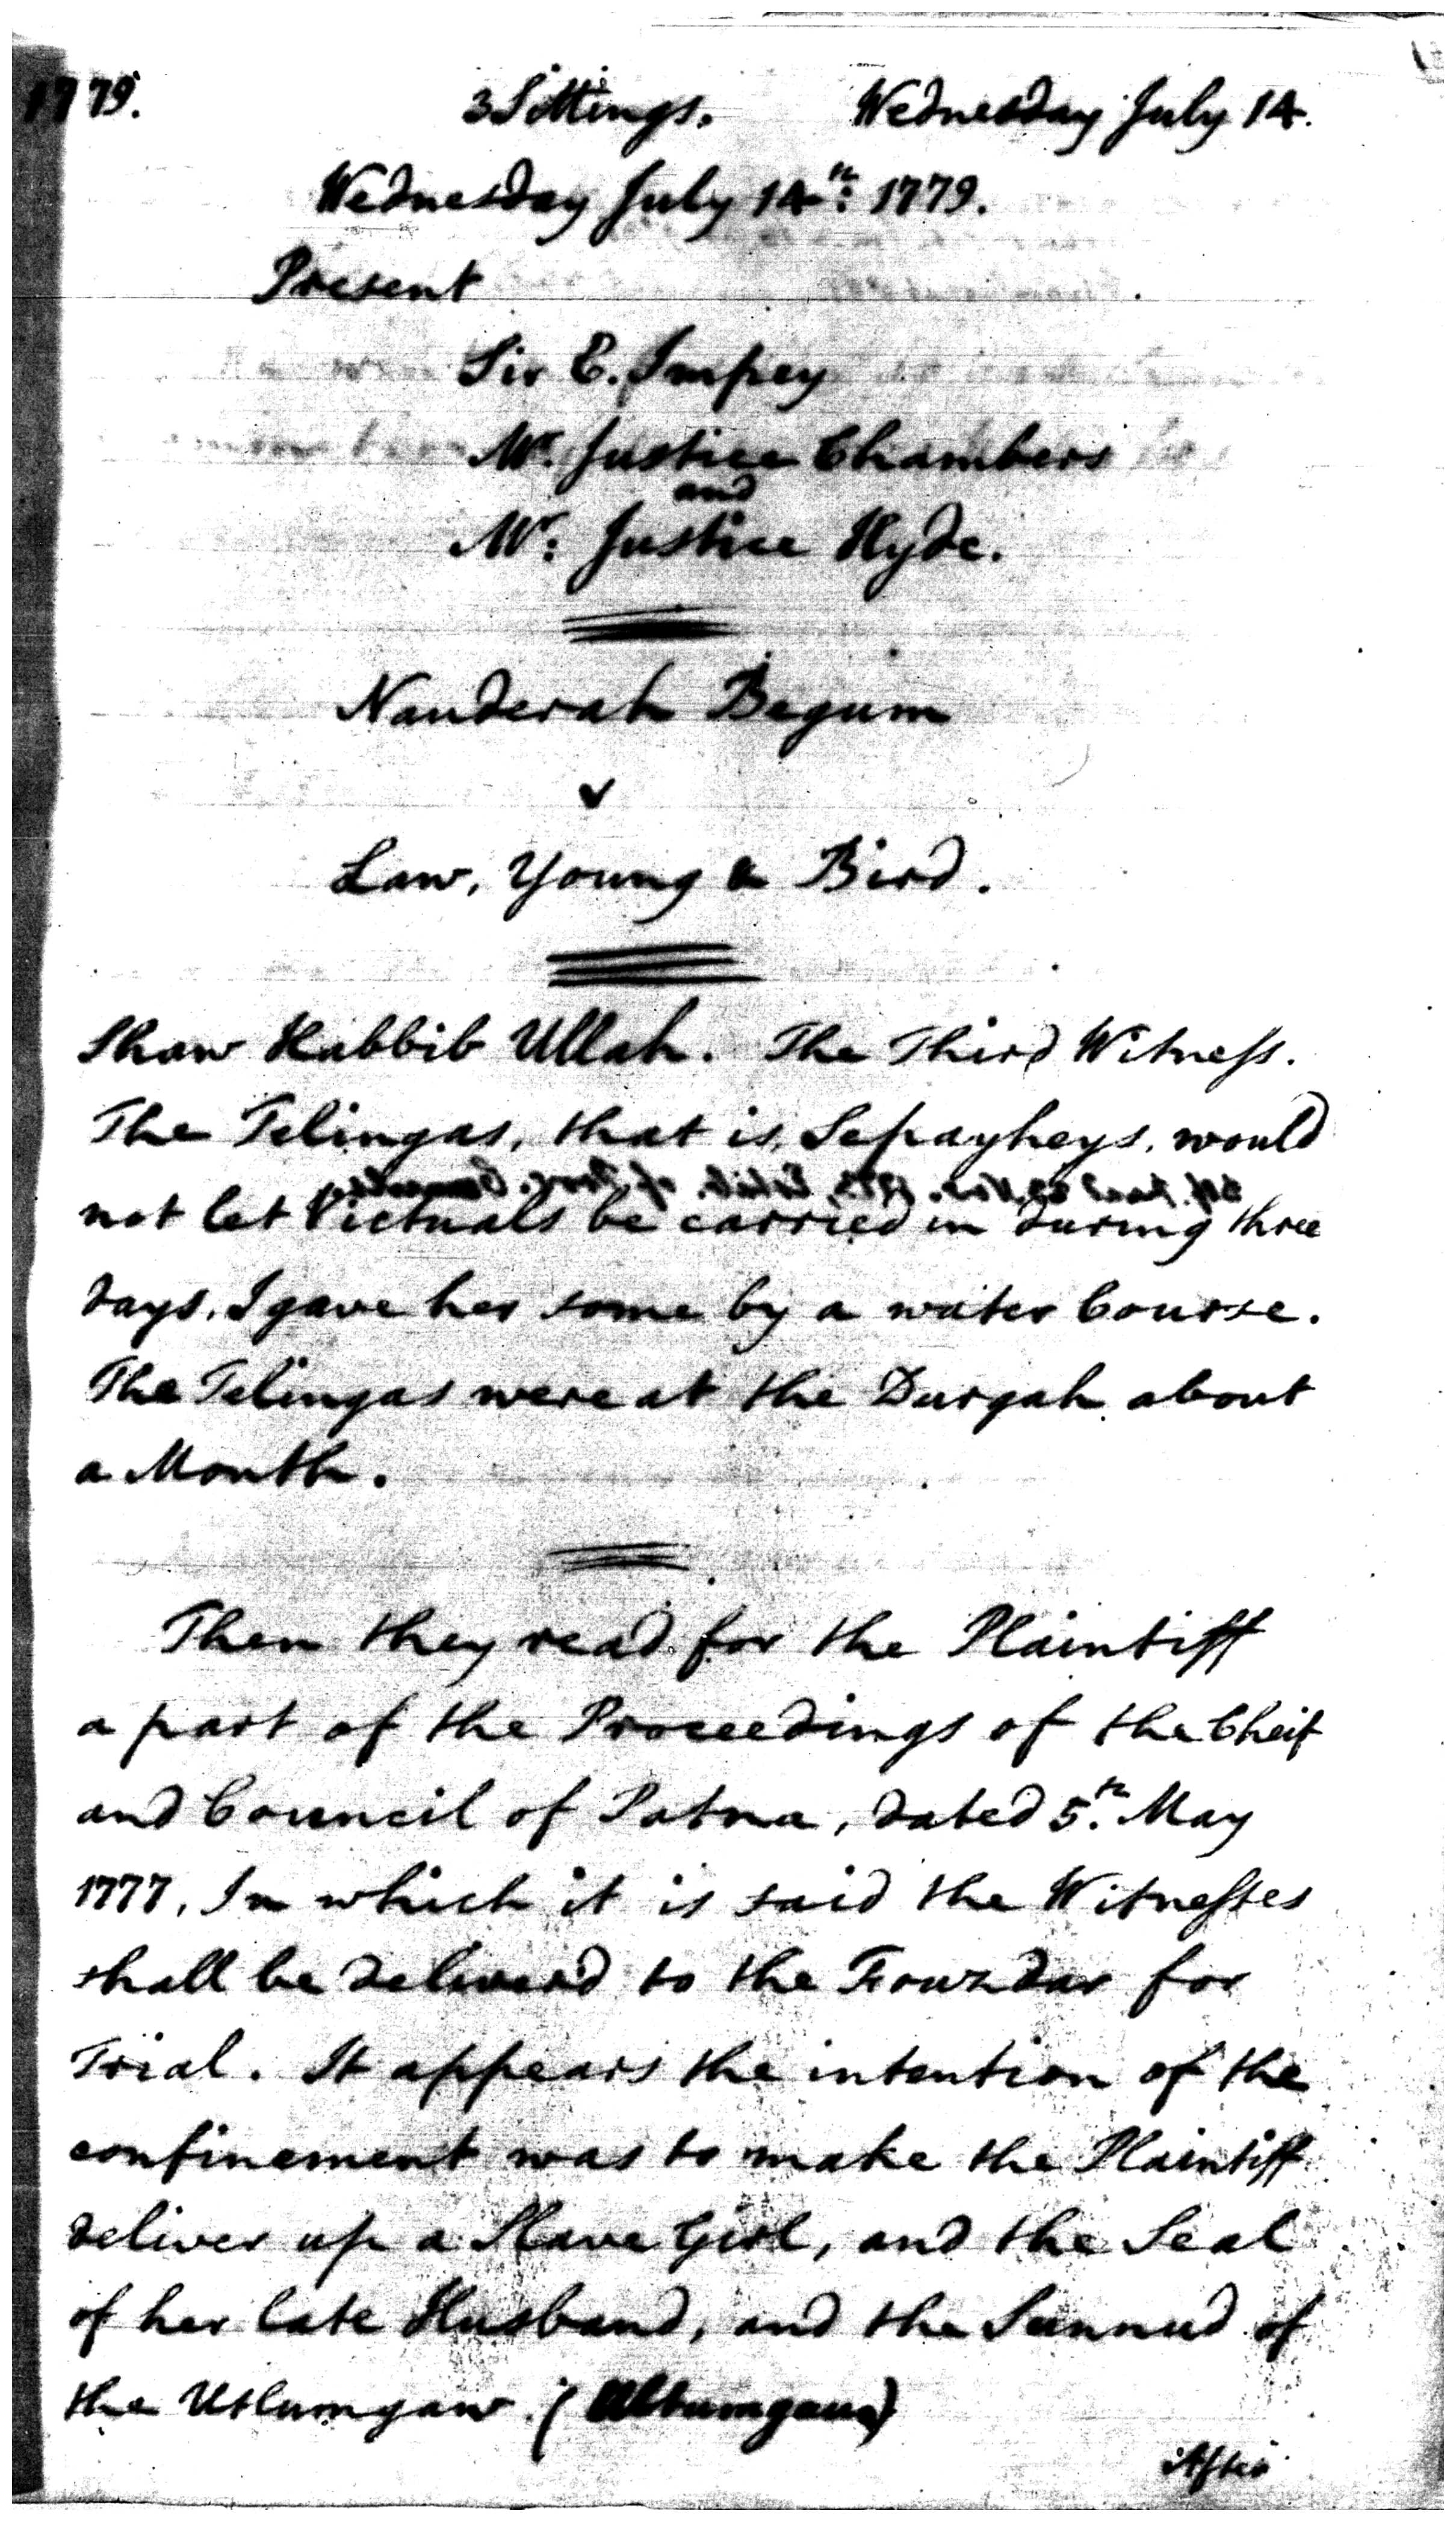 1779. 3 Sittings. Wednesday July 14.
Wednesday July 14th: 1779.
Present
Sir E. Impey
Mr. Justice Chambers
and
Mr: Justice Hyde.
Nauderah Begum
v
Law, Young & Bird.
Shaw Habbib Ullah. The Third Witness.
The Telingas, that is, Sepayheys, would
not let Victuals be carried in during three
days. I gave her some by a water Course.
The Telingas were at the Durgah about
a Month.
Then they read for the Plaintiff
a part of the Proceedings of the Cheif
and Council of Patna, dated 5.th May
1777, In which it is said the Witnesses
shall be deliverd to the Fouzdar for
Trial. It appears the intention of the
confinement was to make the Plaintiff
deliver up a Slave Girl, and the Seal
of her late Husband, and the Sunnud of
the Utlumgaw. (Ultumgaua)
After